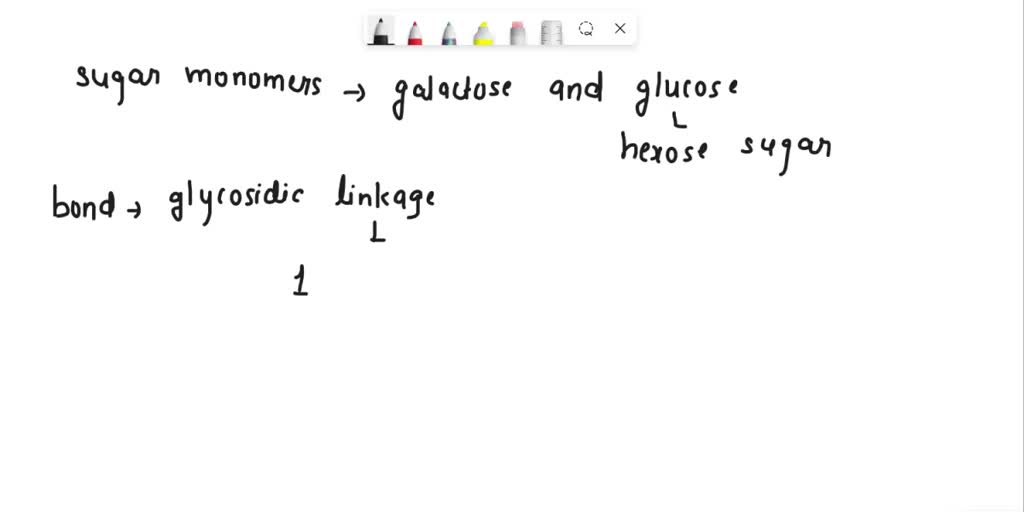 sugar monomers → galactose and glucose
hexose sugar
bond → glycosidic linkage
1